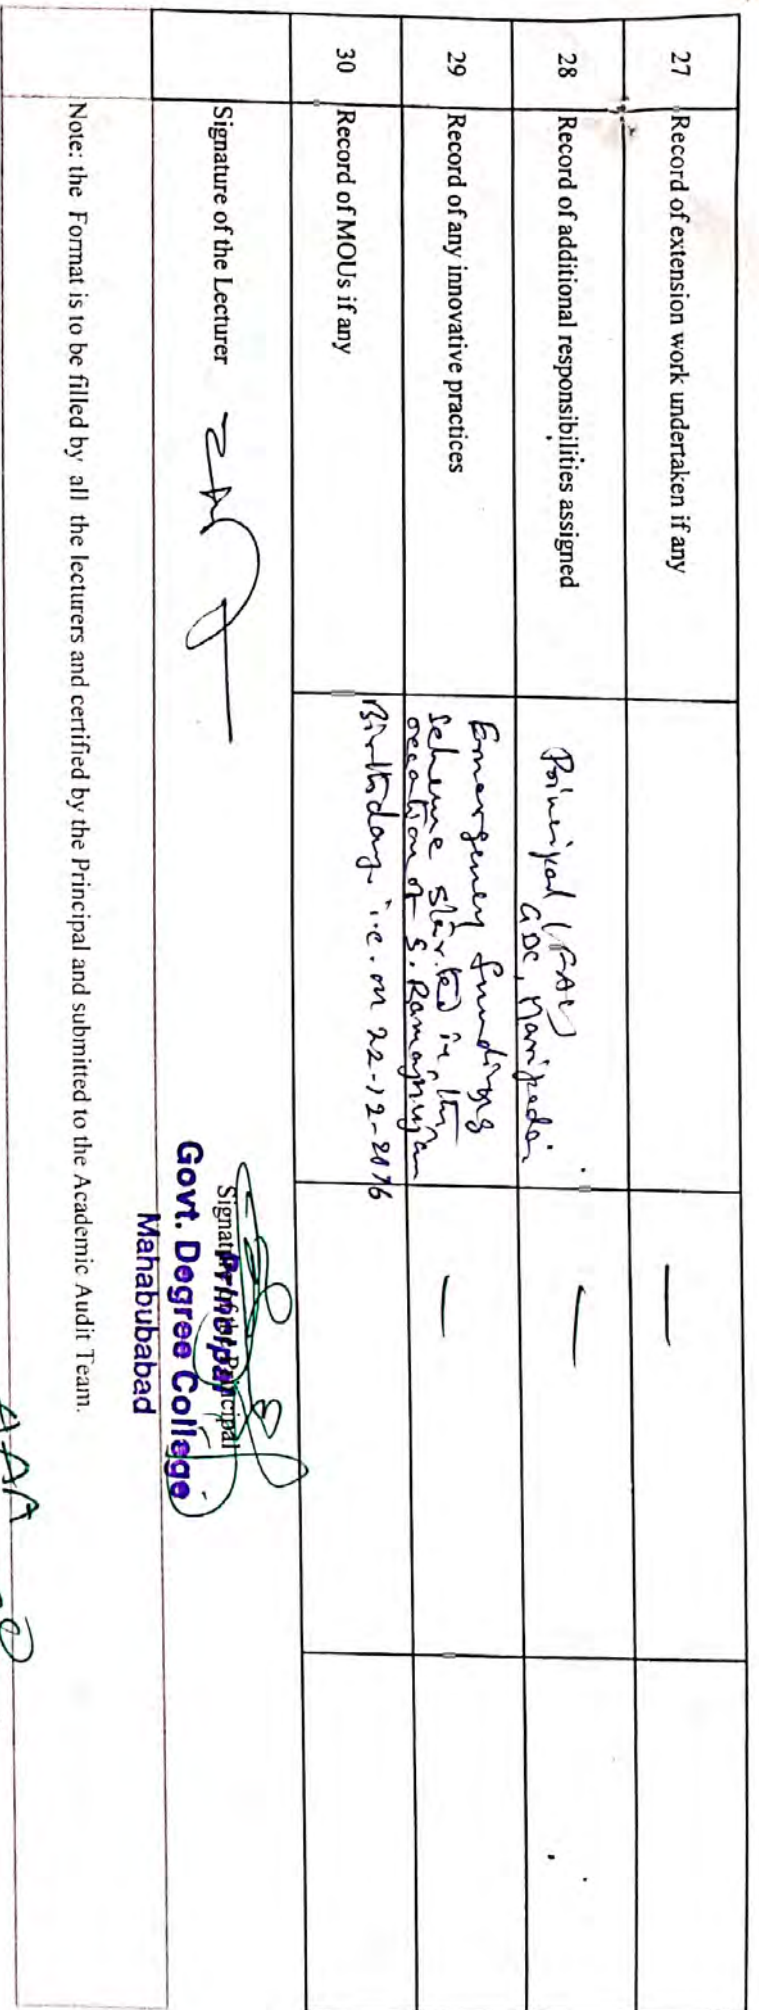 27 Record of extension work undertaken if any —
28 Record of additional responsibilities assigned Principal (FAC) —
GDC, Maripeda
29 Record of any innovative practices Emergency fundings —
scheme started in the
occation of S. Ramanujan
Birthday i.e. on 22-12-2016
30 Record of MOUs if any
Signature of the Lecturer
Signature of the Principal
Principal
Govt. Degree College
Mahabubabad
Note: the Format is to be filled by all the lecturers and certified by the Principal and submitted to the Academic Audit Team.